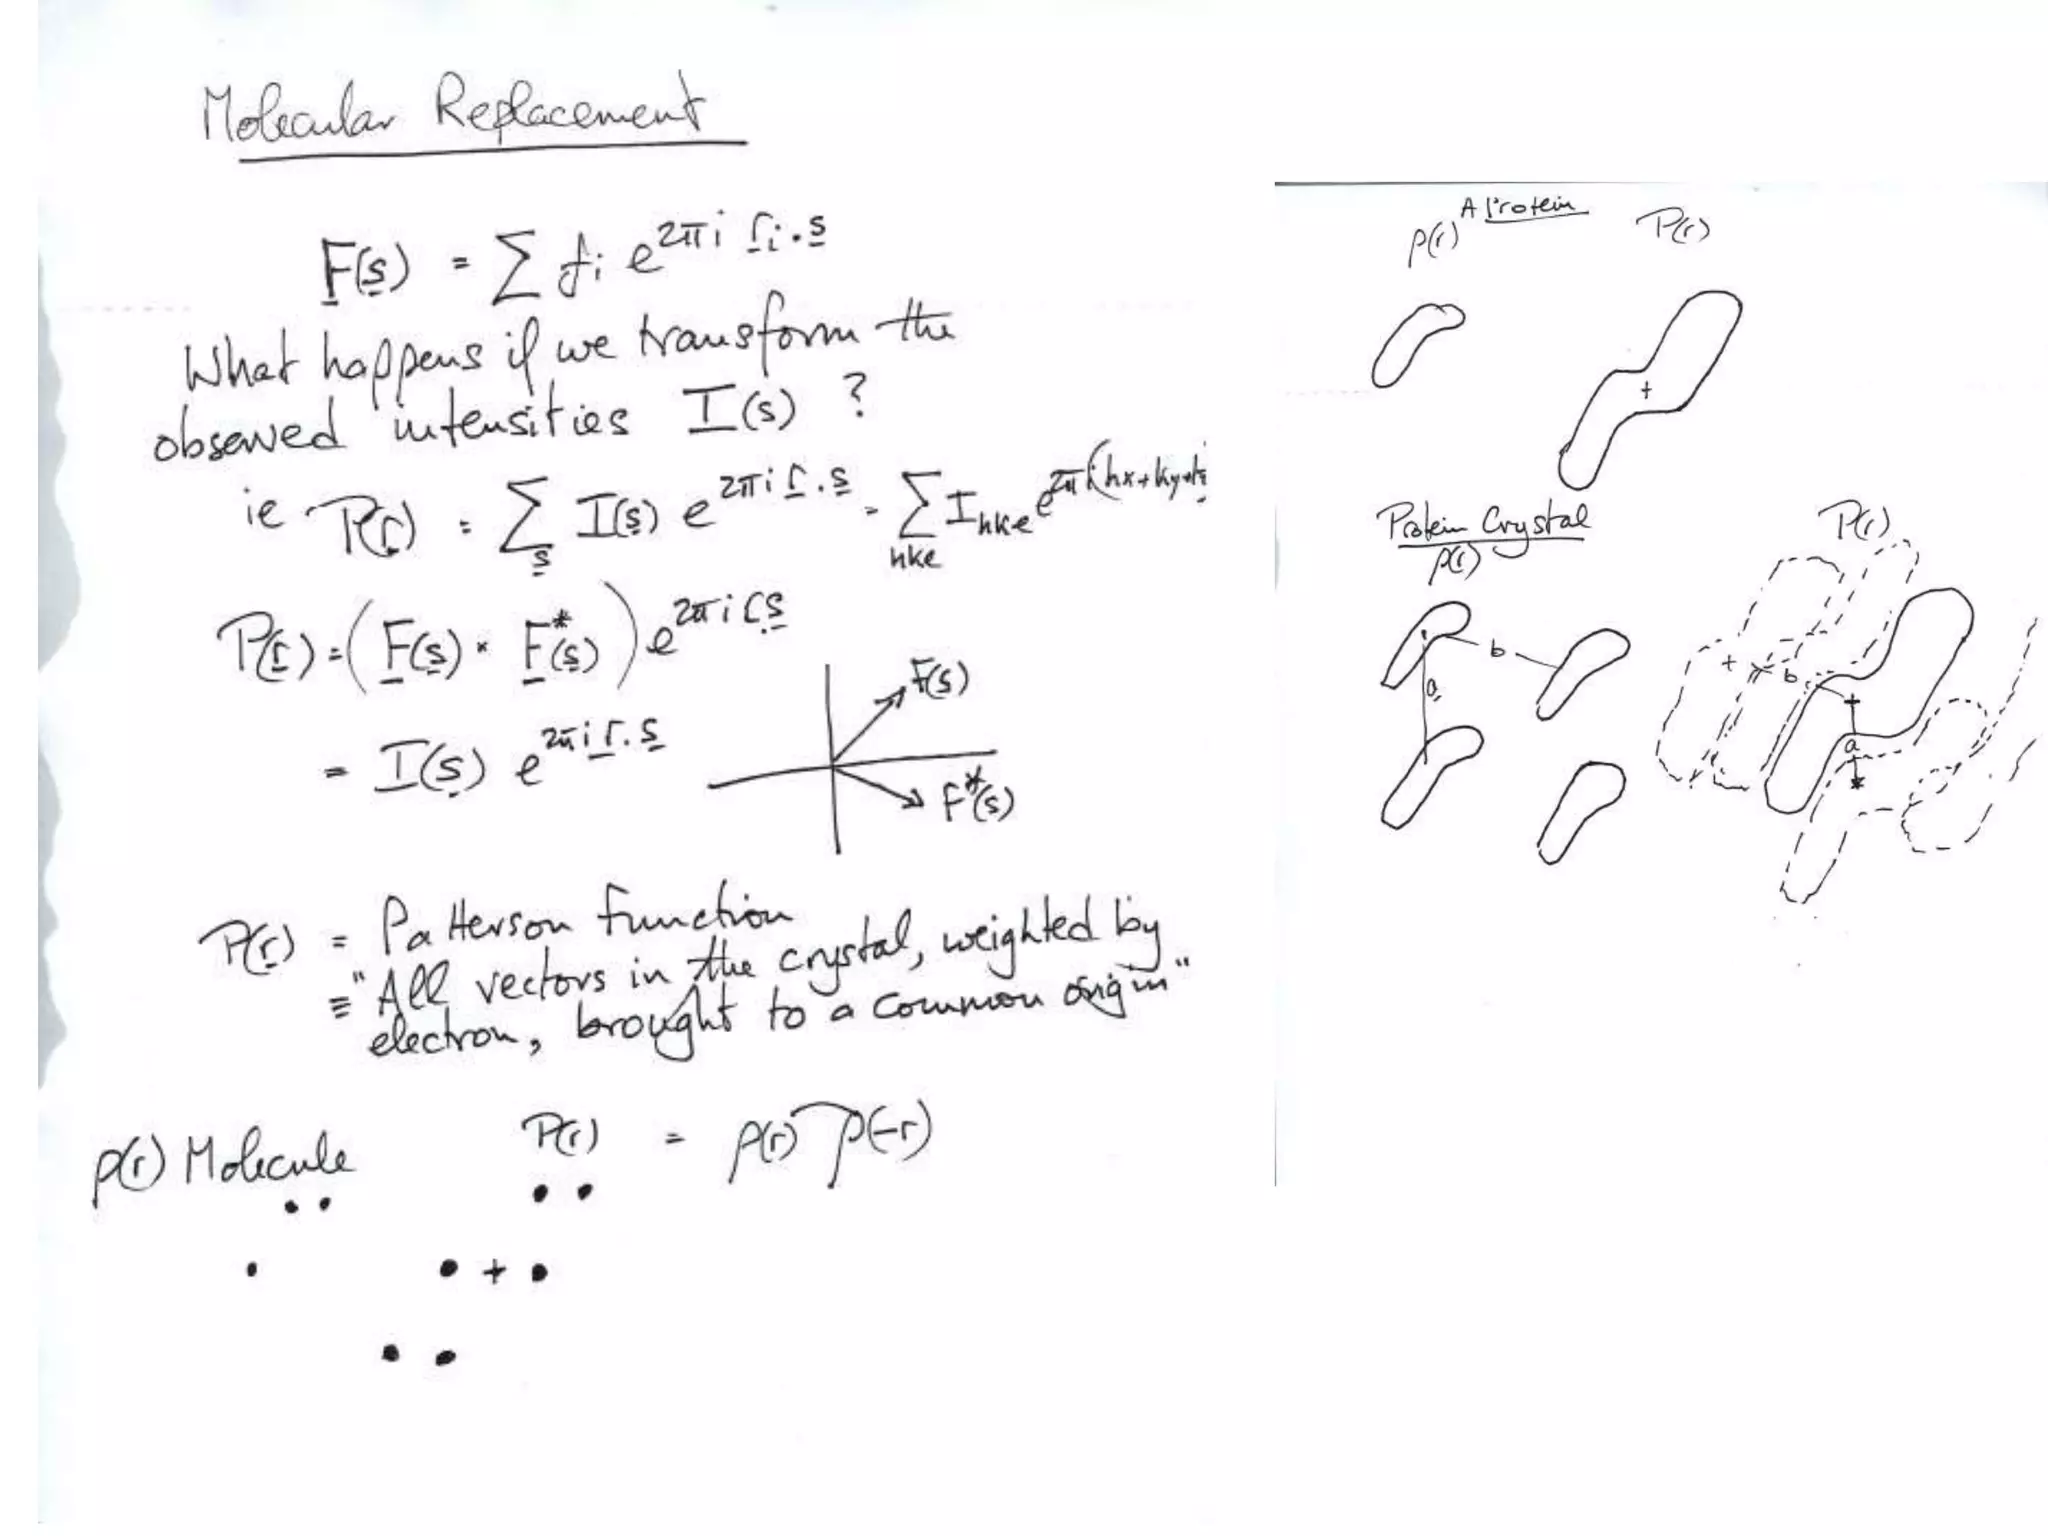 Molecular Replacement
F(s) = ∑ fi e^2πi ri.s
What happens if we transform the
observed intensities I(s) ?
ie P(r) = ∑s I(s) e^2πi r.s = ∑hkl Ihkl e^2πi(hx+ky+lz
P(r) = (F(s) × F*(s)) e^2πi r.s
= I(s) e^2πi r.s
F(s)
F*(s)
P(r) = Patterson function
≡ "All vectors in the crystal, weighted by
electron, brought to a common origin"
ρ(r) Molecule P(r) = ρ(r) ρ(-r)
+
A Protein
ρ(r) P(r)
+
Protein Crystal P(r)
ρ(r)
b
a
+ b
+
a